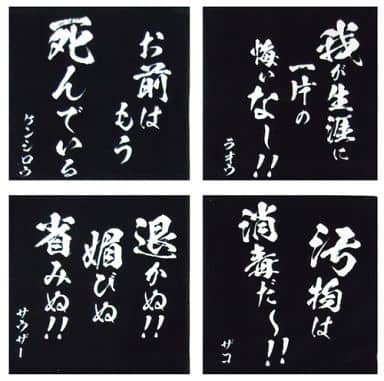 お前は
もう
死んでいる
ケンシロウ
我が生涯に
一片の
悔いなし!!
ラオウ
退かぬ!!
媚びぬ
省みぬ!!
サウザー
汚物は
消毒だ〜!!
ザコ